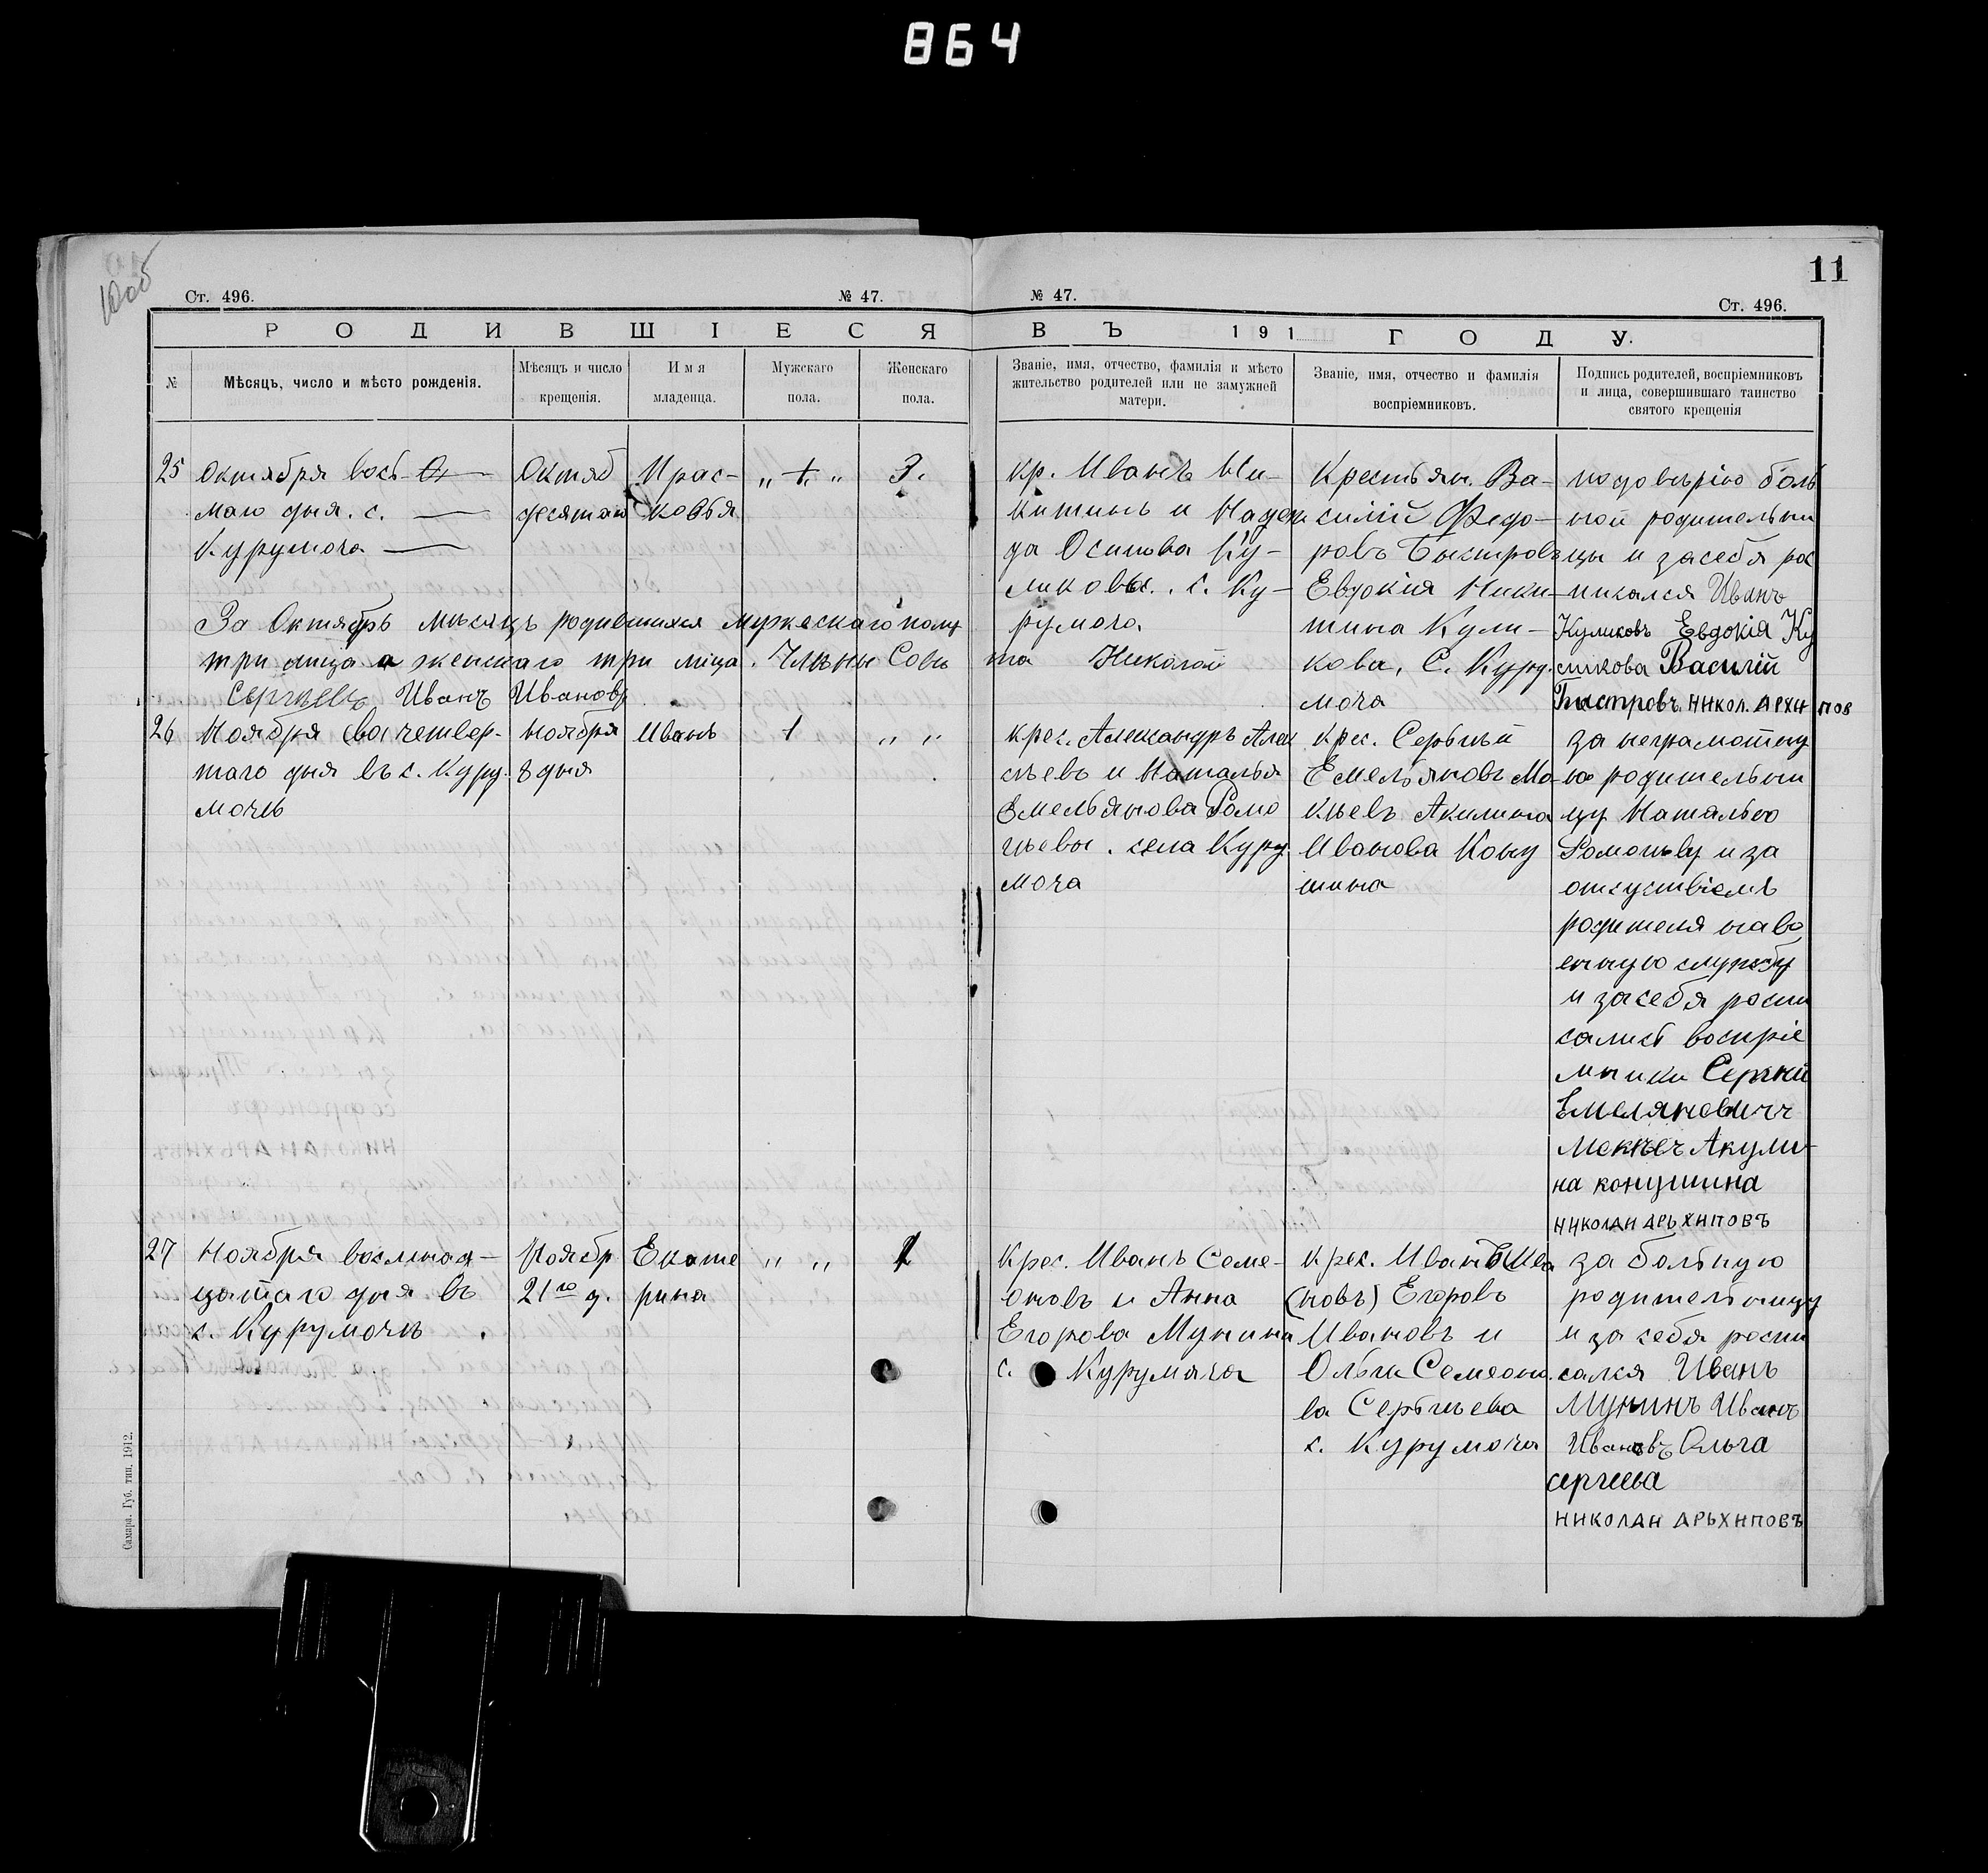 864
11
10об
Ст. 496.
№ 47.
№ 47.
Ст. 496.
РОДИВШІЕСЯ
ВЪ 191 ГОДУ.
№
Мѣсяцъ, число и мѣсто рожденія.
Мѣсяцъ и число крещенія.
Имя младенца.
Мужскаго пола.
Женскаго пола.
Званіе, имя, отчество, фамилія и мѣсто
жительство родителей или не замужней
матери.
Званіе, имя, отчество и фамилія
воспріемниковъ.
Подпись родителей, воспріемниковъ
и лица, совершившаго таинство
святого крещенія
25
Октября вось-
маго дня. с.
Курумоча
Октяб
десятаго
Прас-
ковья
„ + „
3.
кр. Иванъ Ни-
китинъ и Надеж
да Осипова Ку-
ликовы. с. Ку-
румоча.
Крестьян. Ва-
силій Федо-
ровъ Быстровъ
Евдокія Ники-
тина Кули-
кова, С. Куру-
моча
по довѣрію боль
ной родительни
цы и за себя рос
писался Иванъ
Куликовъ Евдокія Ку
ликова Василій
Быстровъ НИКОЛ. АРХИПОВ
За Октябрь мѣсяцъ родившихся мужескаго пола
три лица а женскаго три лица. Члены Совѣ
та Николай
Сергѣевъ Иванъ Ивановъ
26
Ноября четвер-
таго дня въ с. Куру-
мочѣ
Ноября
8 дня
Иванъ
1
„ „
крес. Александръ Алек
сѣевъ и Наталья
Емельянова Рома
нѣевы. села Куру
моча
Крес. Сергѣй
Емельяновъ Мо-
кѣевъ Акилина
Иванова Кону
шина
за неграмотну
ю родительни
цу Наталью
и за
отсуствіемъ
родителя на во
енную службу
и за себя роспи
сались воспріе
мники Сергѣй
Емеляновичъ
Мокѣевъ Акули-
на конушина
НИКОЛАИ АРЬХИПОВЪ
27
Ноября восьмнад-
цатаго дня въ
с. Курумочѣ.
Ноябр
21го д.
Екате
рина
„ „
1
Крес. Иванъ Семе-
оновъ и Анна
Егорова Мунины
с. Курумоча
крес. Иванъ Ива
(новъ) Егоровъ
Ивановъ и
Ольга Семеоно
ва Сергѣева
с. Курумоча
за больную
родительницу
и за себя роспи
сался Иванъ
Мунинъ Иванъ
Ивановъ Ольга
сергеева
НИКОЛАИ АРЬХИПОВЪ
Самара. Губ. тип. 1912.